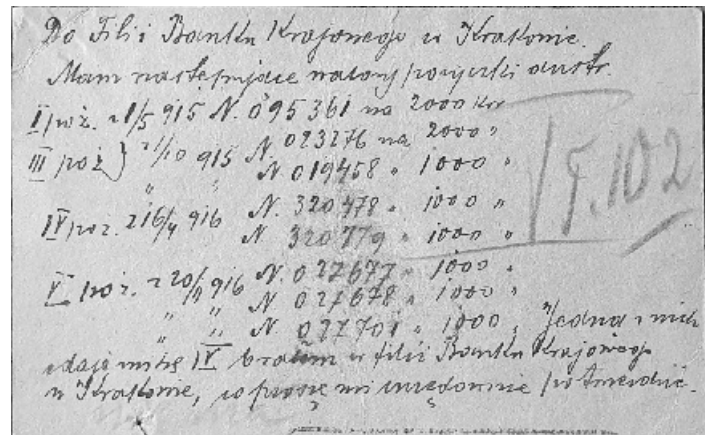 Do Filii Banku Krajowego w Krakowie.
Mam następujące walory pożyczki austr.
I poż. z 1/5 915 N. 095361 na 2000 Kor
III poż } z 1/10 915 N 023276 na 2000 "
" " N 019458 " 1000 "
IV poż. z 16/4 916 N. 320778 " 1000 "
N. 320779 " 1000 "
V poż. z 20/11 916 N. 027677 " 1000 "
" " N 027678 " 1000 "
" " N 027701 " 1000 " Jedną z nich
IV w filii Banku Krajowego
w Krakowie, co proszę mi potwierdzić.
VF.102